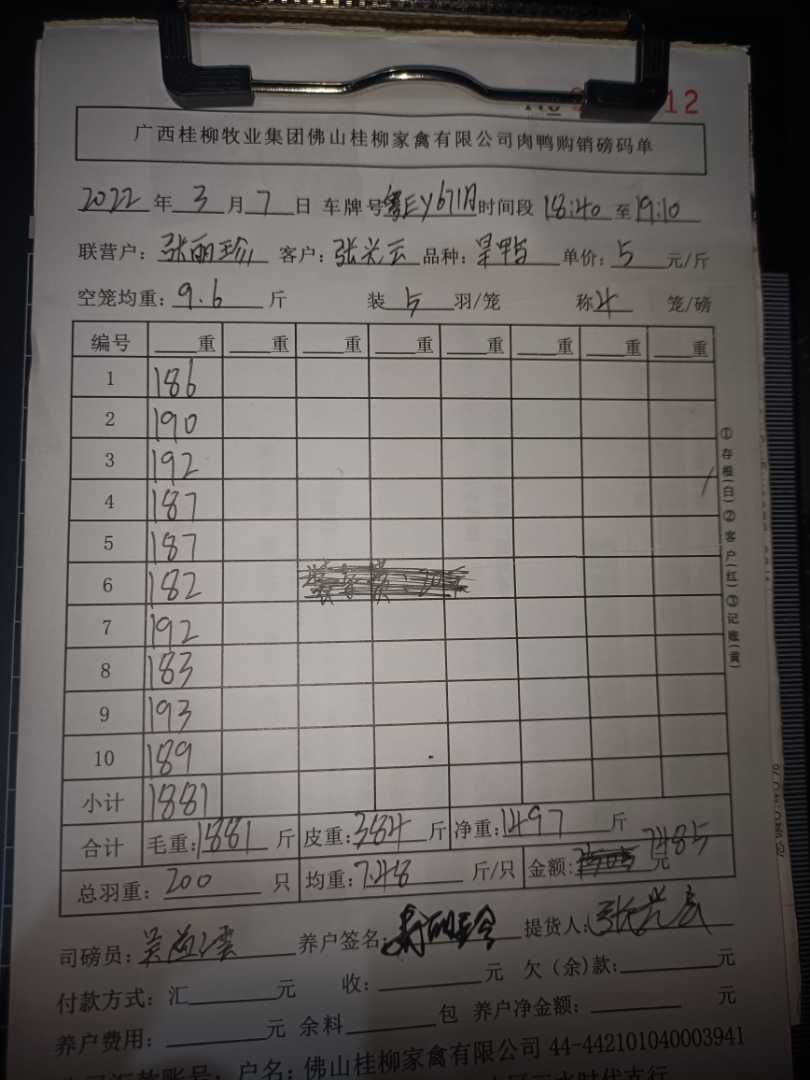 No 12
广西桂柳牧业集团佛山桂柳家禽有限公司肉鸭购销磅码单
2022 年 3 月 7 日 车牌号 粤EY671A 时间段 18:40 至 19:10
联营户: 张丽珍 客户: 张光云 品种: 旱鸭 单价: 5 元/斤
空笼均重: 9.6 斤 装 5 羽/笼 称 4 笼/磅
编号 重 重 重 重 重 重 重 重
1 186
2 190
3 192
4 187
5 187
6 182
7 192
8 183
9 193
10 189
小计 1881
合计 毛重: 1881 斤 皮重: 384 斤 净重: 1497 斤
总羽重: 200 只 均重: 7.48 斤/只 金额: 7485 元
①存根(白)②客户(红)③记账(黄)
司磅员: 养户签名: 提货人:
付款方式: 汇 元 收: 元 欠(余)款: 元
养户费用: 元 余料 包 养户净金额: 元
户名: 佛山桂柳家禽有限公司 44-442101040003941